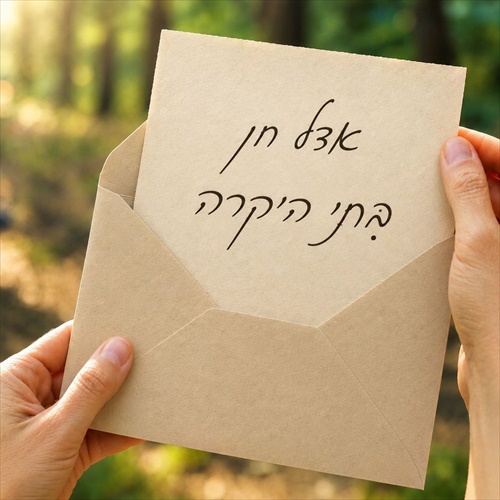 אדל חן
בּתי היקרה